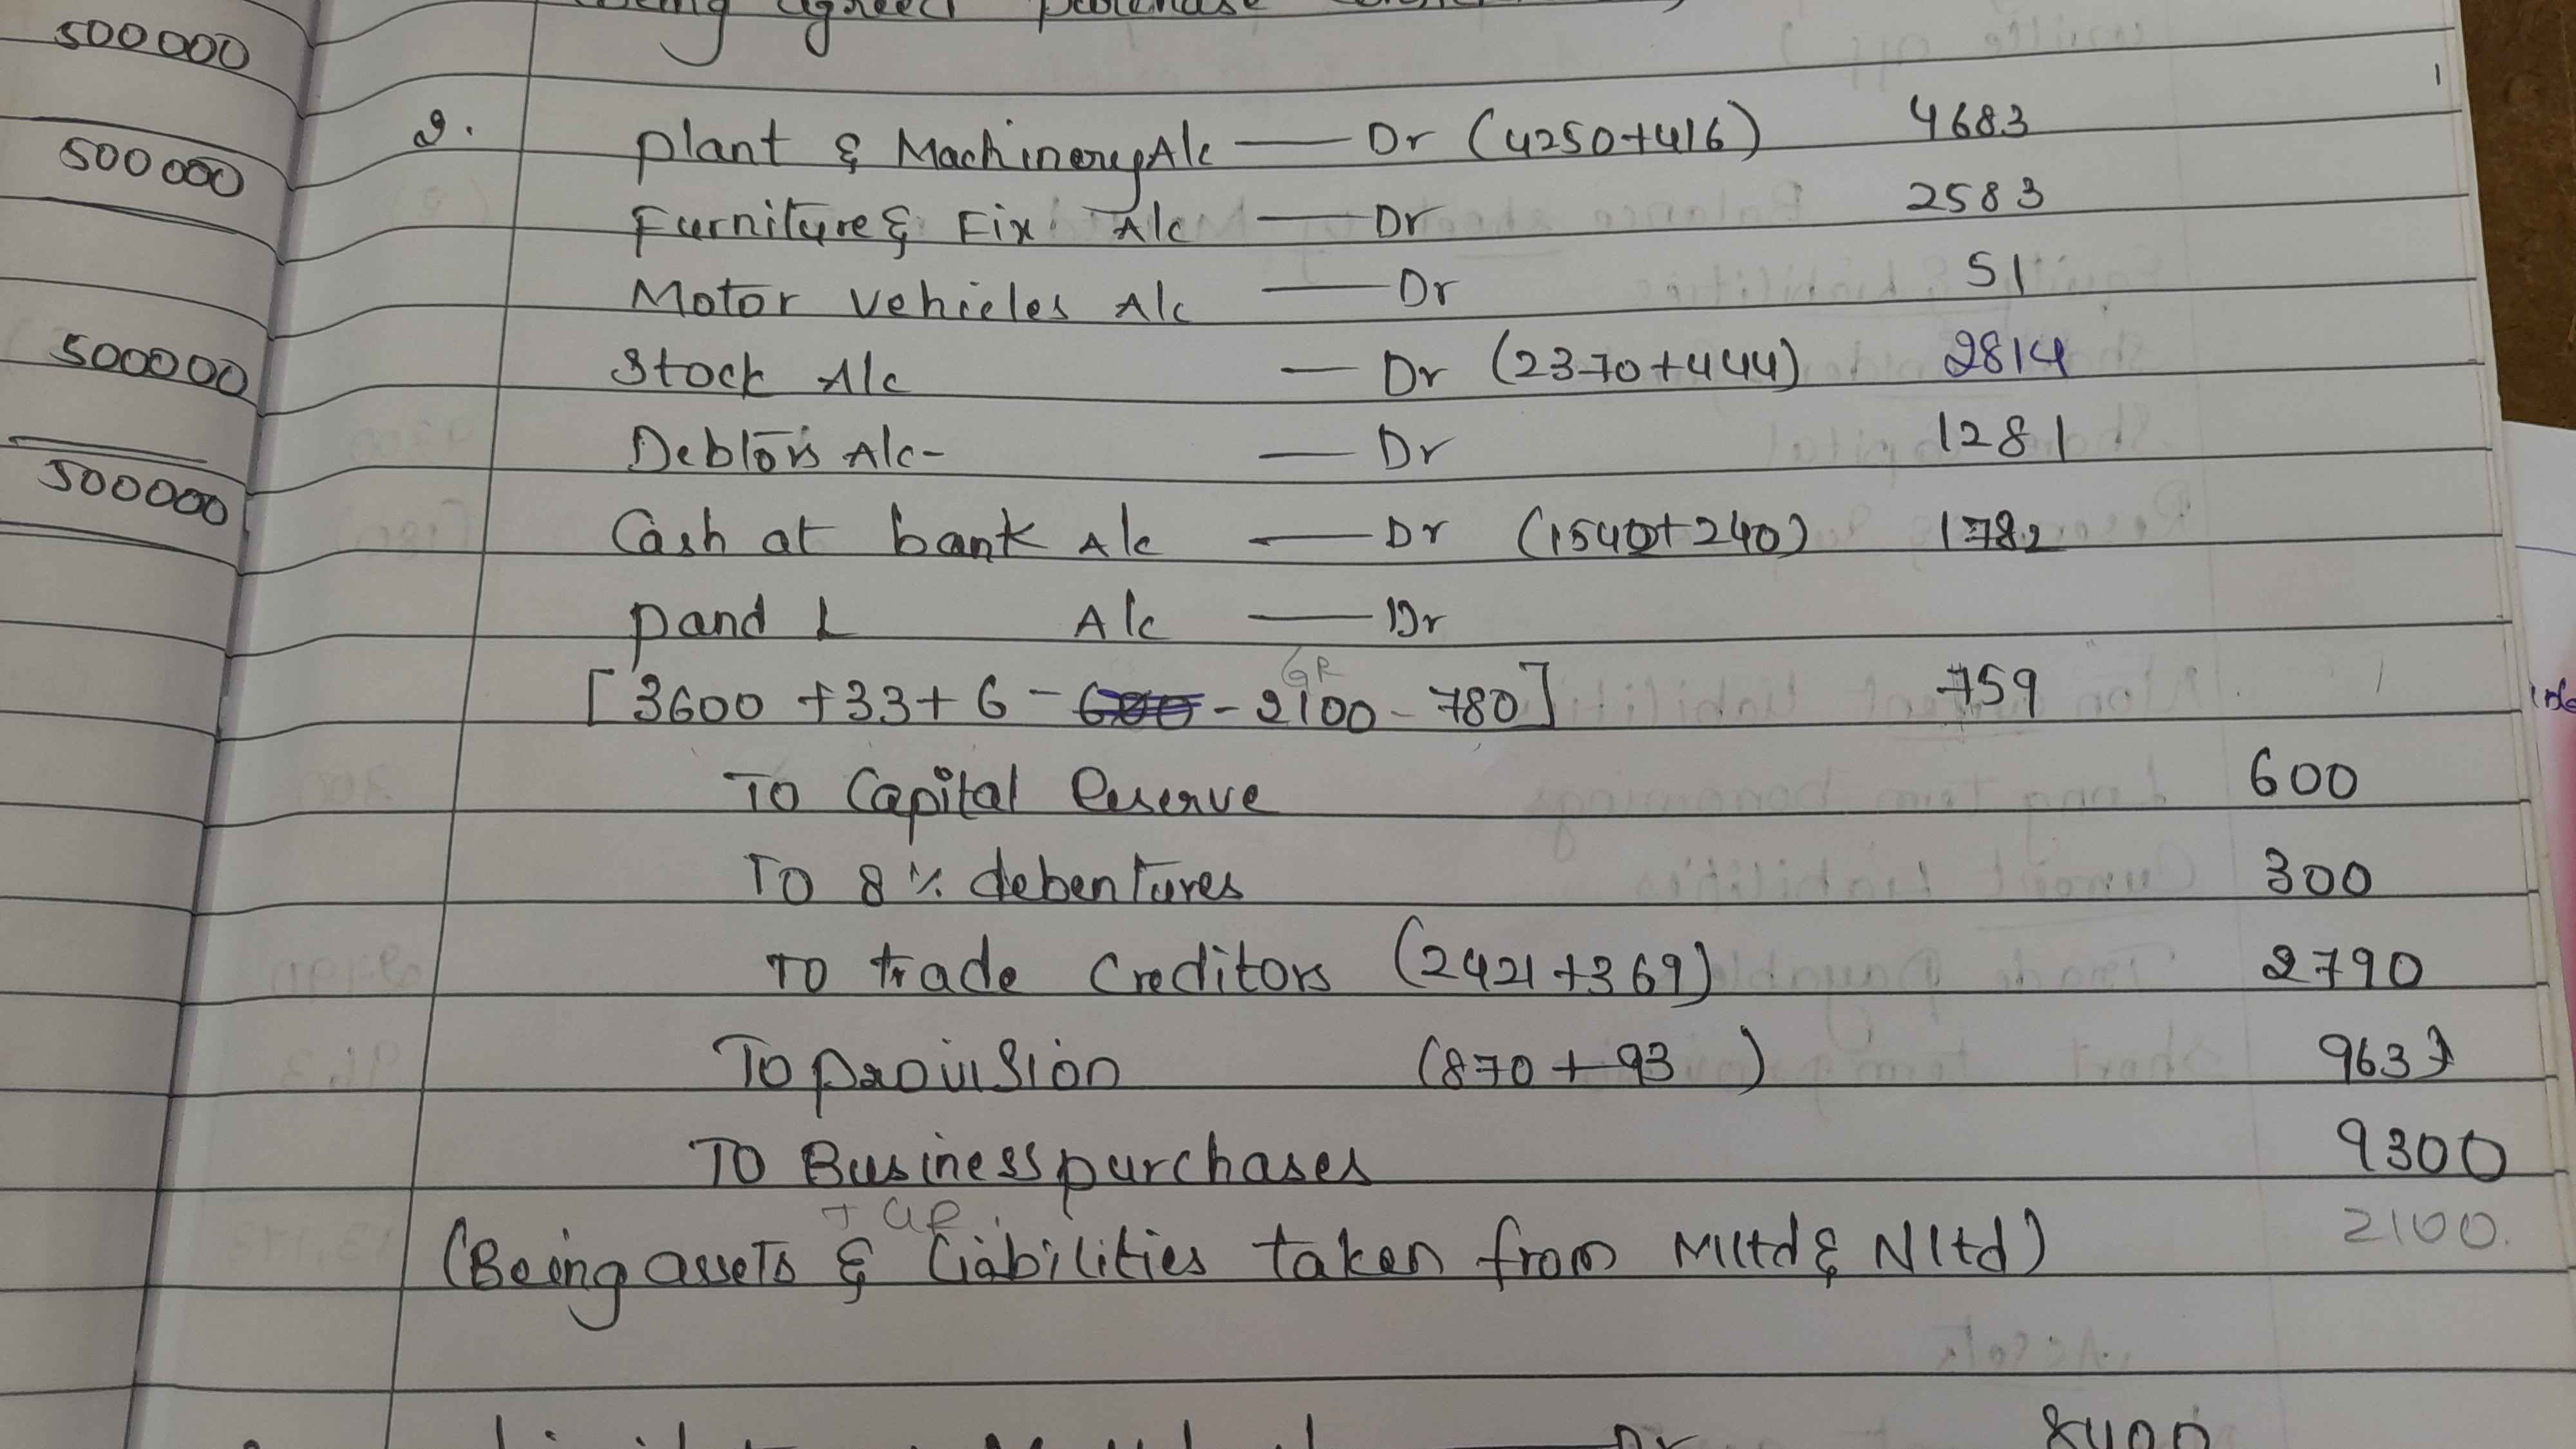 500000
500000
500000
500000
Being agreed purchase
2. Plant & Machinery A/c — Dr (4250+416) 4683
Furniture & Fix A/c — Dr 2583
Motor vehicles A/c — Dr 51
Stock A/c — Dr (2370+444) 2814
Debtors A/c- — Dr 1281
Cash at bank A/c — Dr (1540+240) 1782
P and L A/c — Dr
GR
[3600 +33+6 - 600 - 2100 - 780] 759
To Capital Reserve 600
To 8% debentures 300
To trade Creditors (2421+369) 2790
To provision (870+93) 963
To Business purchases 9300
+ GR 2100.
(Being assets & Liabilities taken from M ltd & N ltd)
Dr 8400